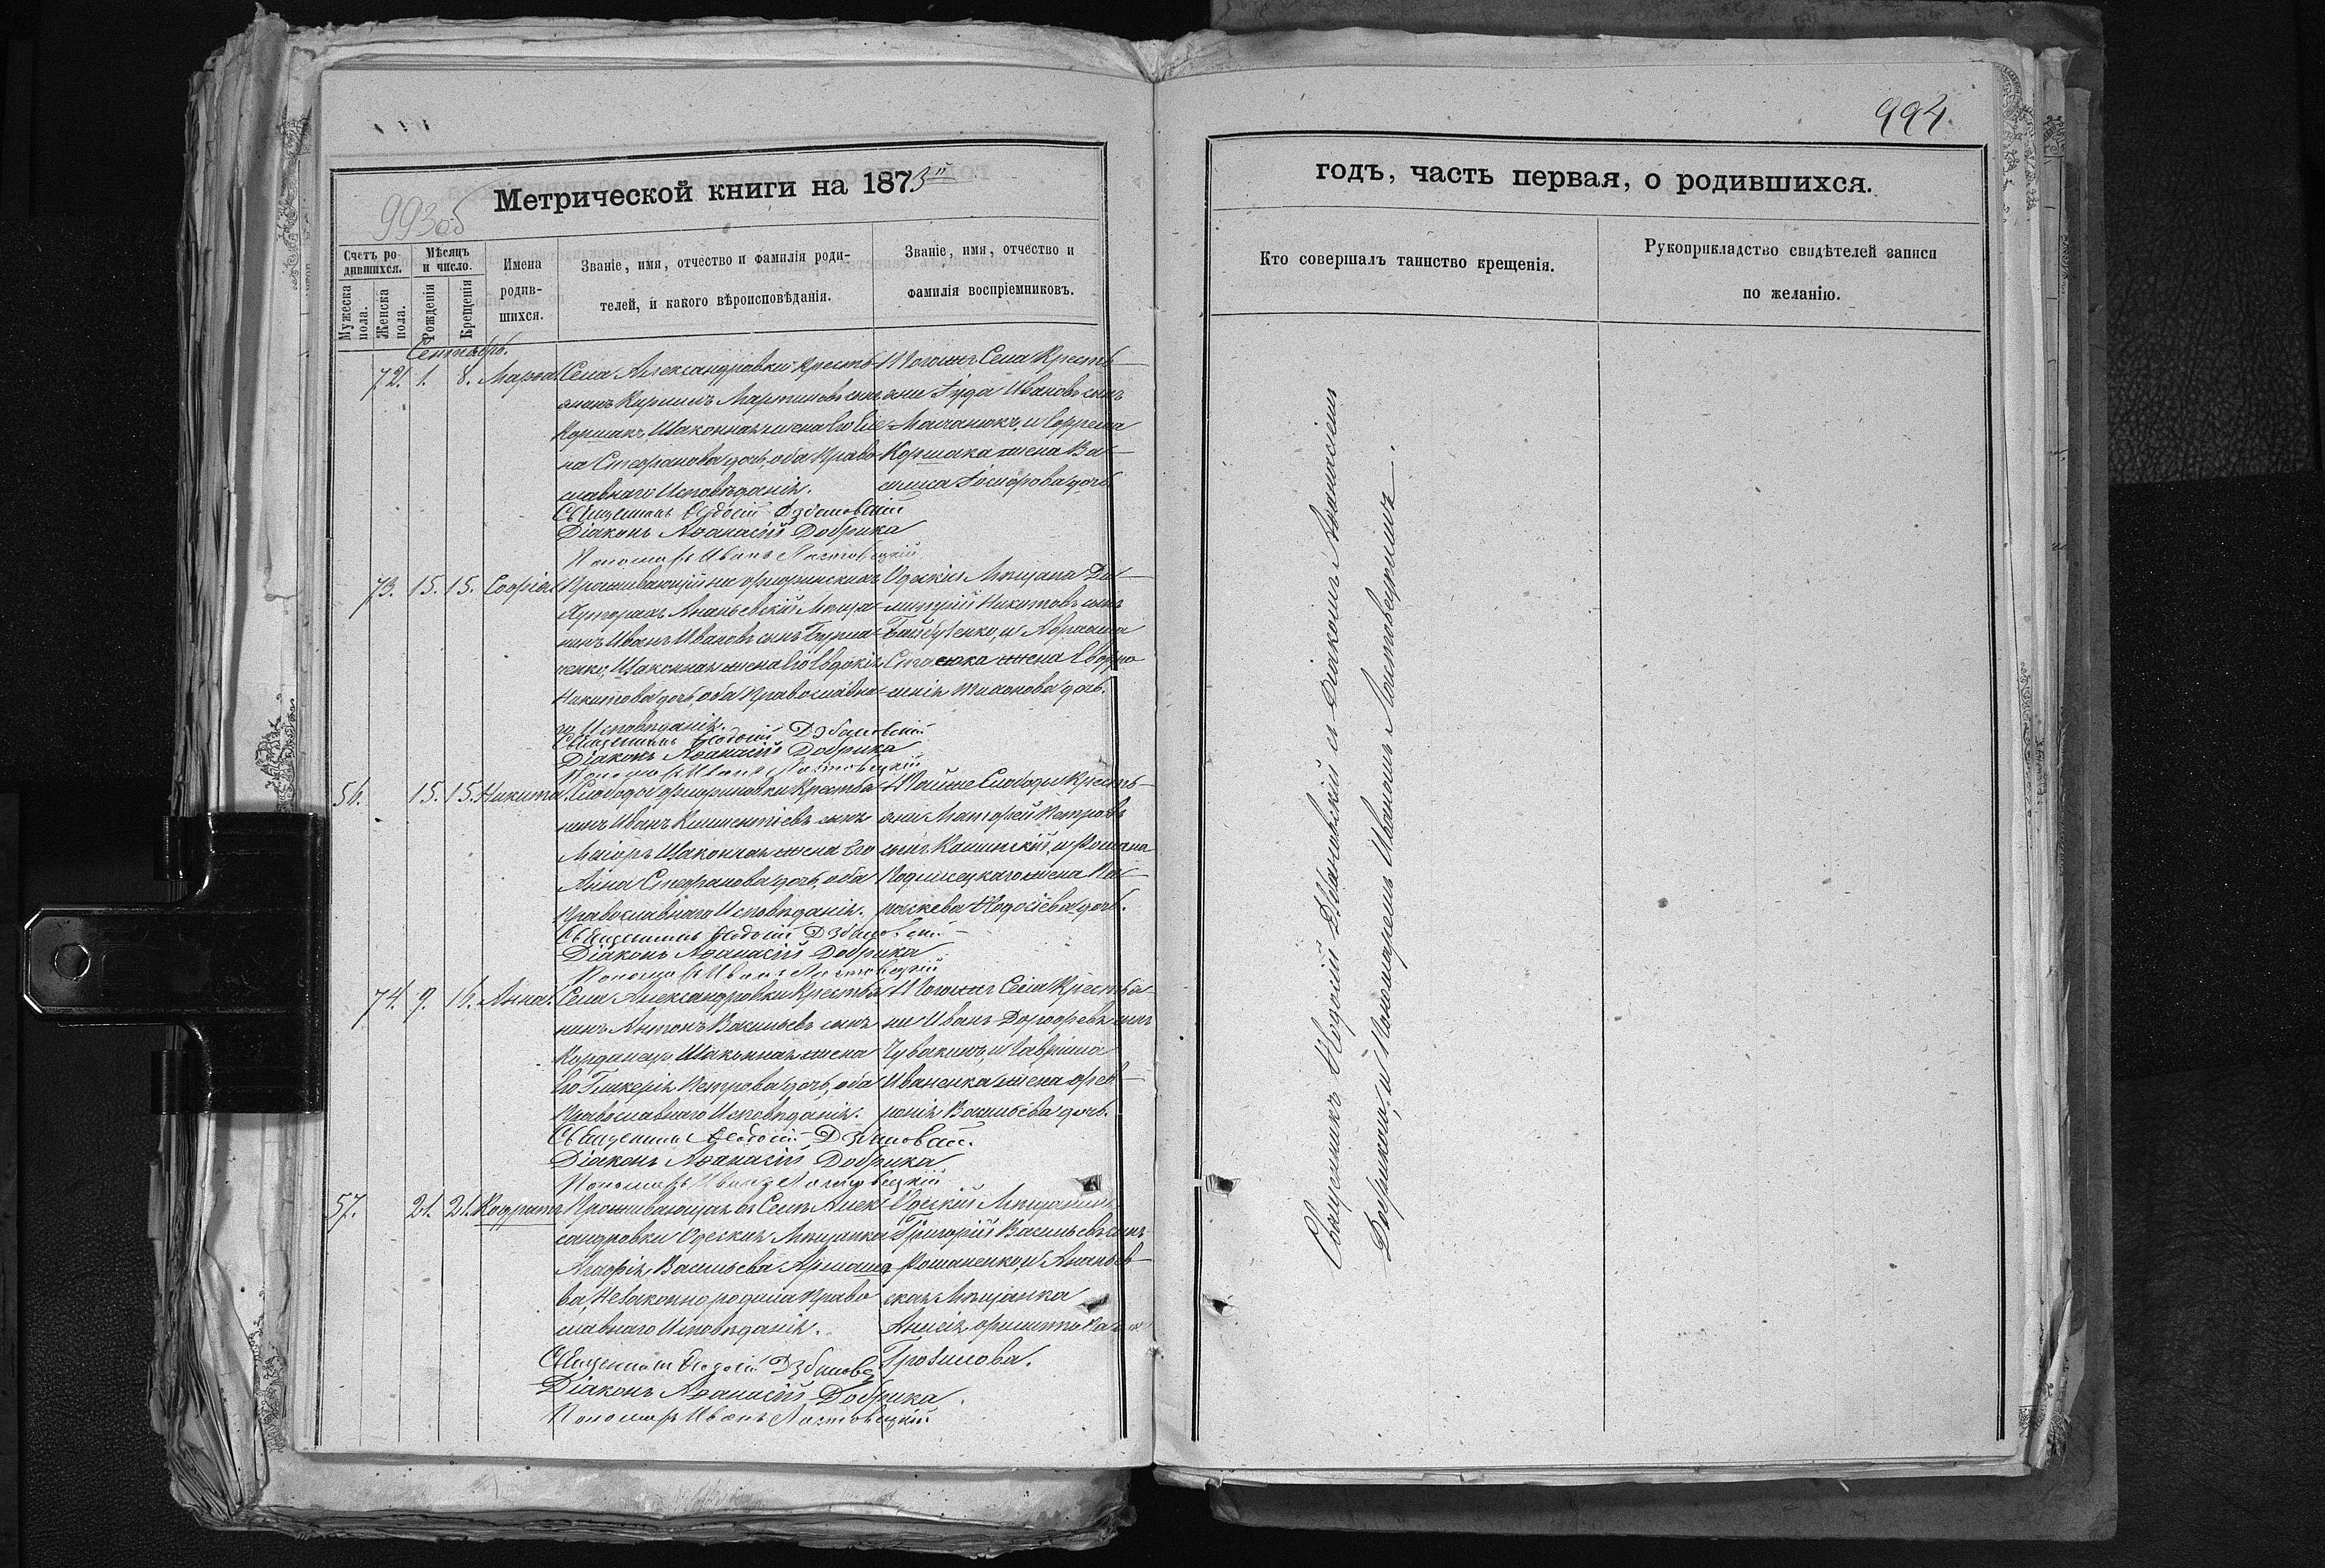 993об
Метрической книги на 1873й
Счетъ ро-
дившихся.
Мужеска пола.
Женска пола.
Мѣсяцъ
и число.
Рожденія
Крещенія
Имена
родив-
шихся.
Званіе, имя, отчество и фамилія роди-
телей, и какого вѣроисповѣданія.
Званіе, имя, отчество и
фамилія воспріемниковъ.
Сентябрь.
72. 1. 8. Марѳа.
Села Александровки кресть-
янинъ Мартиновъ сынъ
Коршакъ, Изаконная жена Его
на Стефанова дочь, оба Право-
славнаго Исповѣданія.
Священникъ Ѳеодосій Дзбановскій
Діаконъ Аѳанасій Добрика
Пономарь Иванъ Лястовецкій
Тогожъ Села Кресть-
яне Іуда Ивановъ сынъ
и Ефрема
Коршака жена Ва-
силиса дочь
73. 15. 15. Софія.
Проживающій на
Хуторахъ Ананьевскій Мѣща-
нинъ Иванъ Ивановъ сынъ Бурла-
ченко, Изаконная жена Его Евдокія
Никитова дочь, оба Православна-
го Исповѣданія.
Священникъ Ѳеодосій Дзбановскій
Діаконъ Аѳанасій Добрика
Пономарь Иванъ Лястовецкій
Одескій Мѣщанинъ Ди-
митрій Никитовъ сынъ
и Абрама
жена Евфи-
мія Тихонова дочь.
56. 15. 15. Никита.
Слободофлориновки Крестья-
нинъ Иванъ сынъ
Маіоръ Изаконная жена Его
Анна Стефанова дочь, оба
Православнаго Исповѣданія.
Священникъ Ѳеодосій Дзбановскій
Діаконъ Аѳанасій Добрика
Пономарь Иванъ Лястовецкій
Тойже Слободы Кресть-
яне Матфей Петровъ
сынъ Калинскій, и Романа
жена Па-
раскева Ѳеодосіева дочь.
74. 9. 16. Анна.
Села Александровки Крестья-
нинъ Антонъ Васильевъ сынъ
Изаконная жена
Его Гликерія Петрова дочь, оба
Православнаго Исповѣданія.
Священникъ Ѳеодосій Дзбановскій
Діаконъ Аѳанасій Добрика
Пономарь Иванъ Лястовецкій
Тогожъ Села Крестья-
не Иванъ Дорофеевъ сынъ
и Гавріила
Иваненка жена Фев-
ронія Васильева дочь.
57. 21. 21. Кодратъ
Проживающая въ Селѣ Алек-
сандровки Одеская Мѣщанка
Агафія Васильева
ва, Незаконнородила Право-
славнаго Исповѣданія.
Священникъ Ѳеодосій Дзбановскій
Діаконъ Аѳанасій Добрика
Пономарь Иванъ Лястовецкій
Одескій Мѣщанинъ
Григорій Васильевъ сынъ
Романенко, и Ананьев-
ская Мѣщанка
Анисія
Грозилова.
994
годъ, часть первая, о родившихся.
Кто совершалъ таинство крещенія.
Рукоприкладство свидѣтелей записи
по желанію.
Священникъ Ѳеодосій Дзбановскій съ Діакономъ Аѳанасіемъ
Добрикою, и Пономаремъ Иваномъ Лястовецкимъ.